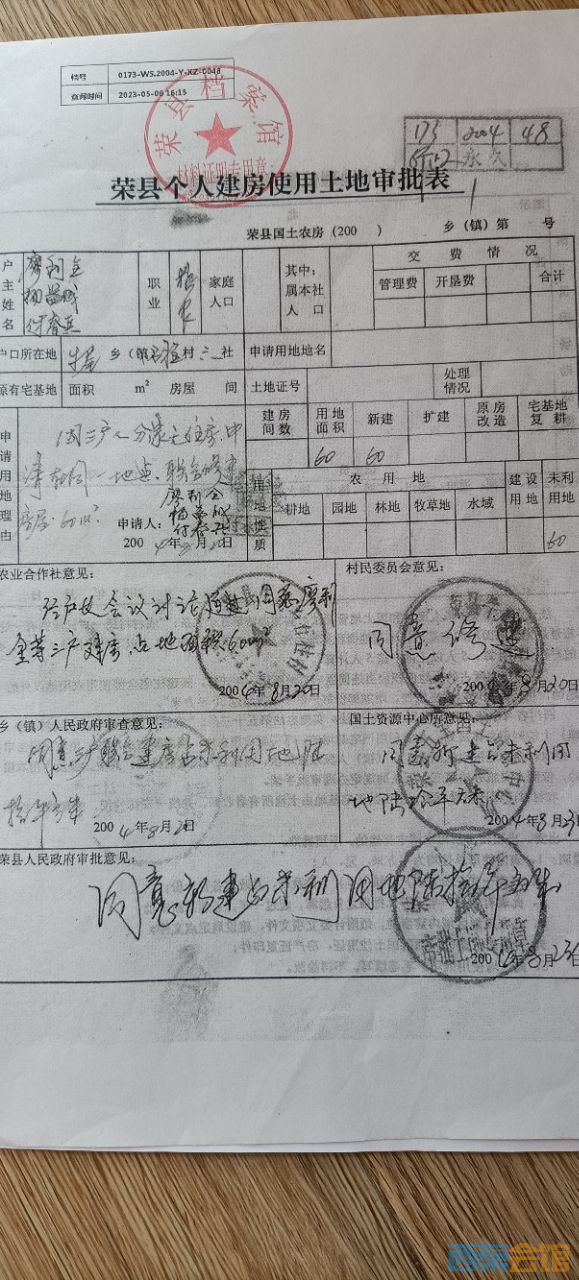 档号 0173-WS.2004-Y-XZ-0048
查阅时间 2023-05-09 16:15
荣县档案馆
材料证明专用章
175 2004 48
永久
荣县个人建房使用土地审批表
荣县国土农房(200 ) 乡(镇)第 号
户主姓名 廖利全 职业 务农 家庭人口 其中:属本社人口 交费情况
管理费 开垦费 合计
户口所在地 乡(镇) 村 三 社 申请用地地名
原有宅基地 面积 m² 房屋 间 土地证号 处理情况
申请用地理由
建房间数 用地面积 新建 扩建 原房改造 宅基地复耕
60 60
因三户人分家无住房,申
请在同一地点,联合修建
房屋60m²
用地性质 农用地 建设用地 未利用地
耕地 园地 林地 牧草地 水域
60
申请人: 廖利全
2004年8月20日
农业合作社意见:
经户校会议讨论通过,同意廖利
全等三户建房,占地面积60m²
2004年8月20日
村民委员会意见:
同意修建
2004年8月20日
乡(镇)人民政府审查意见:
同意三户联合建房占未利用地陆
拾平方米
2004年8月2日
国土资源中心所意见:
同意新建占未利用
地陆拾平方米
2004年8月23日
荣县人民政府审批意见:
同意新建占未利用地陆拾平方米
2004年8月23日
西果会馆